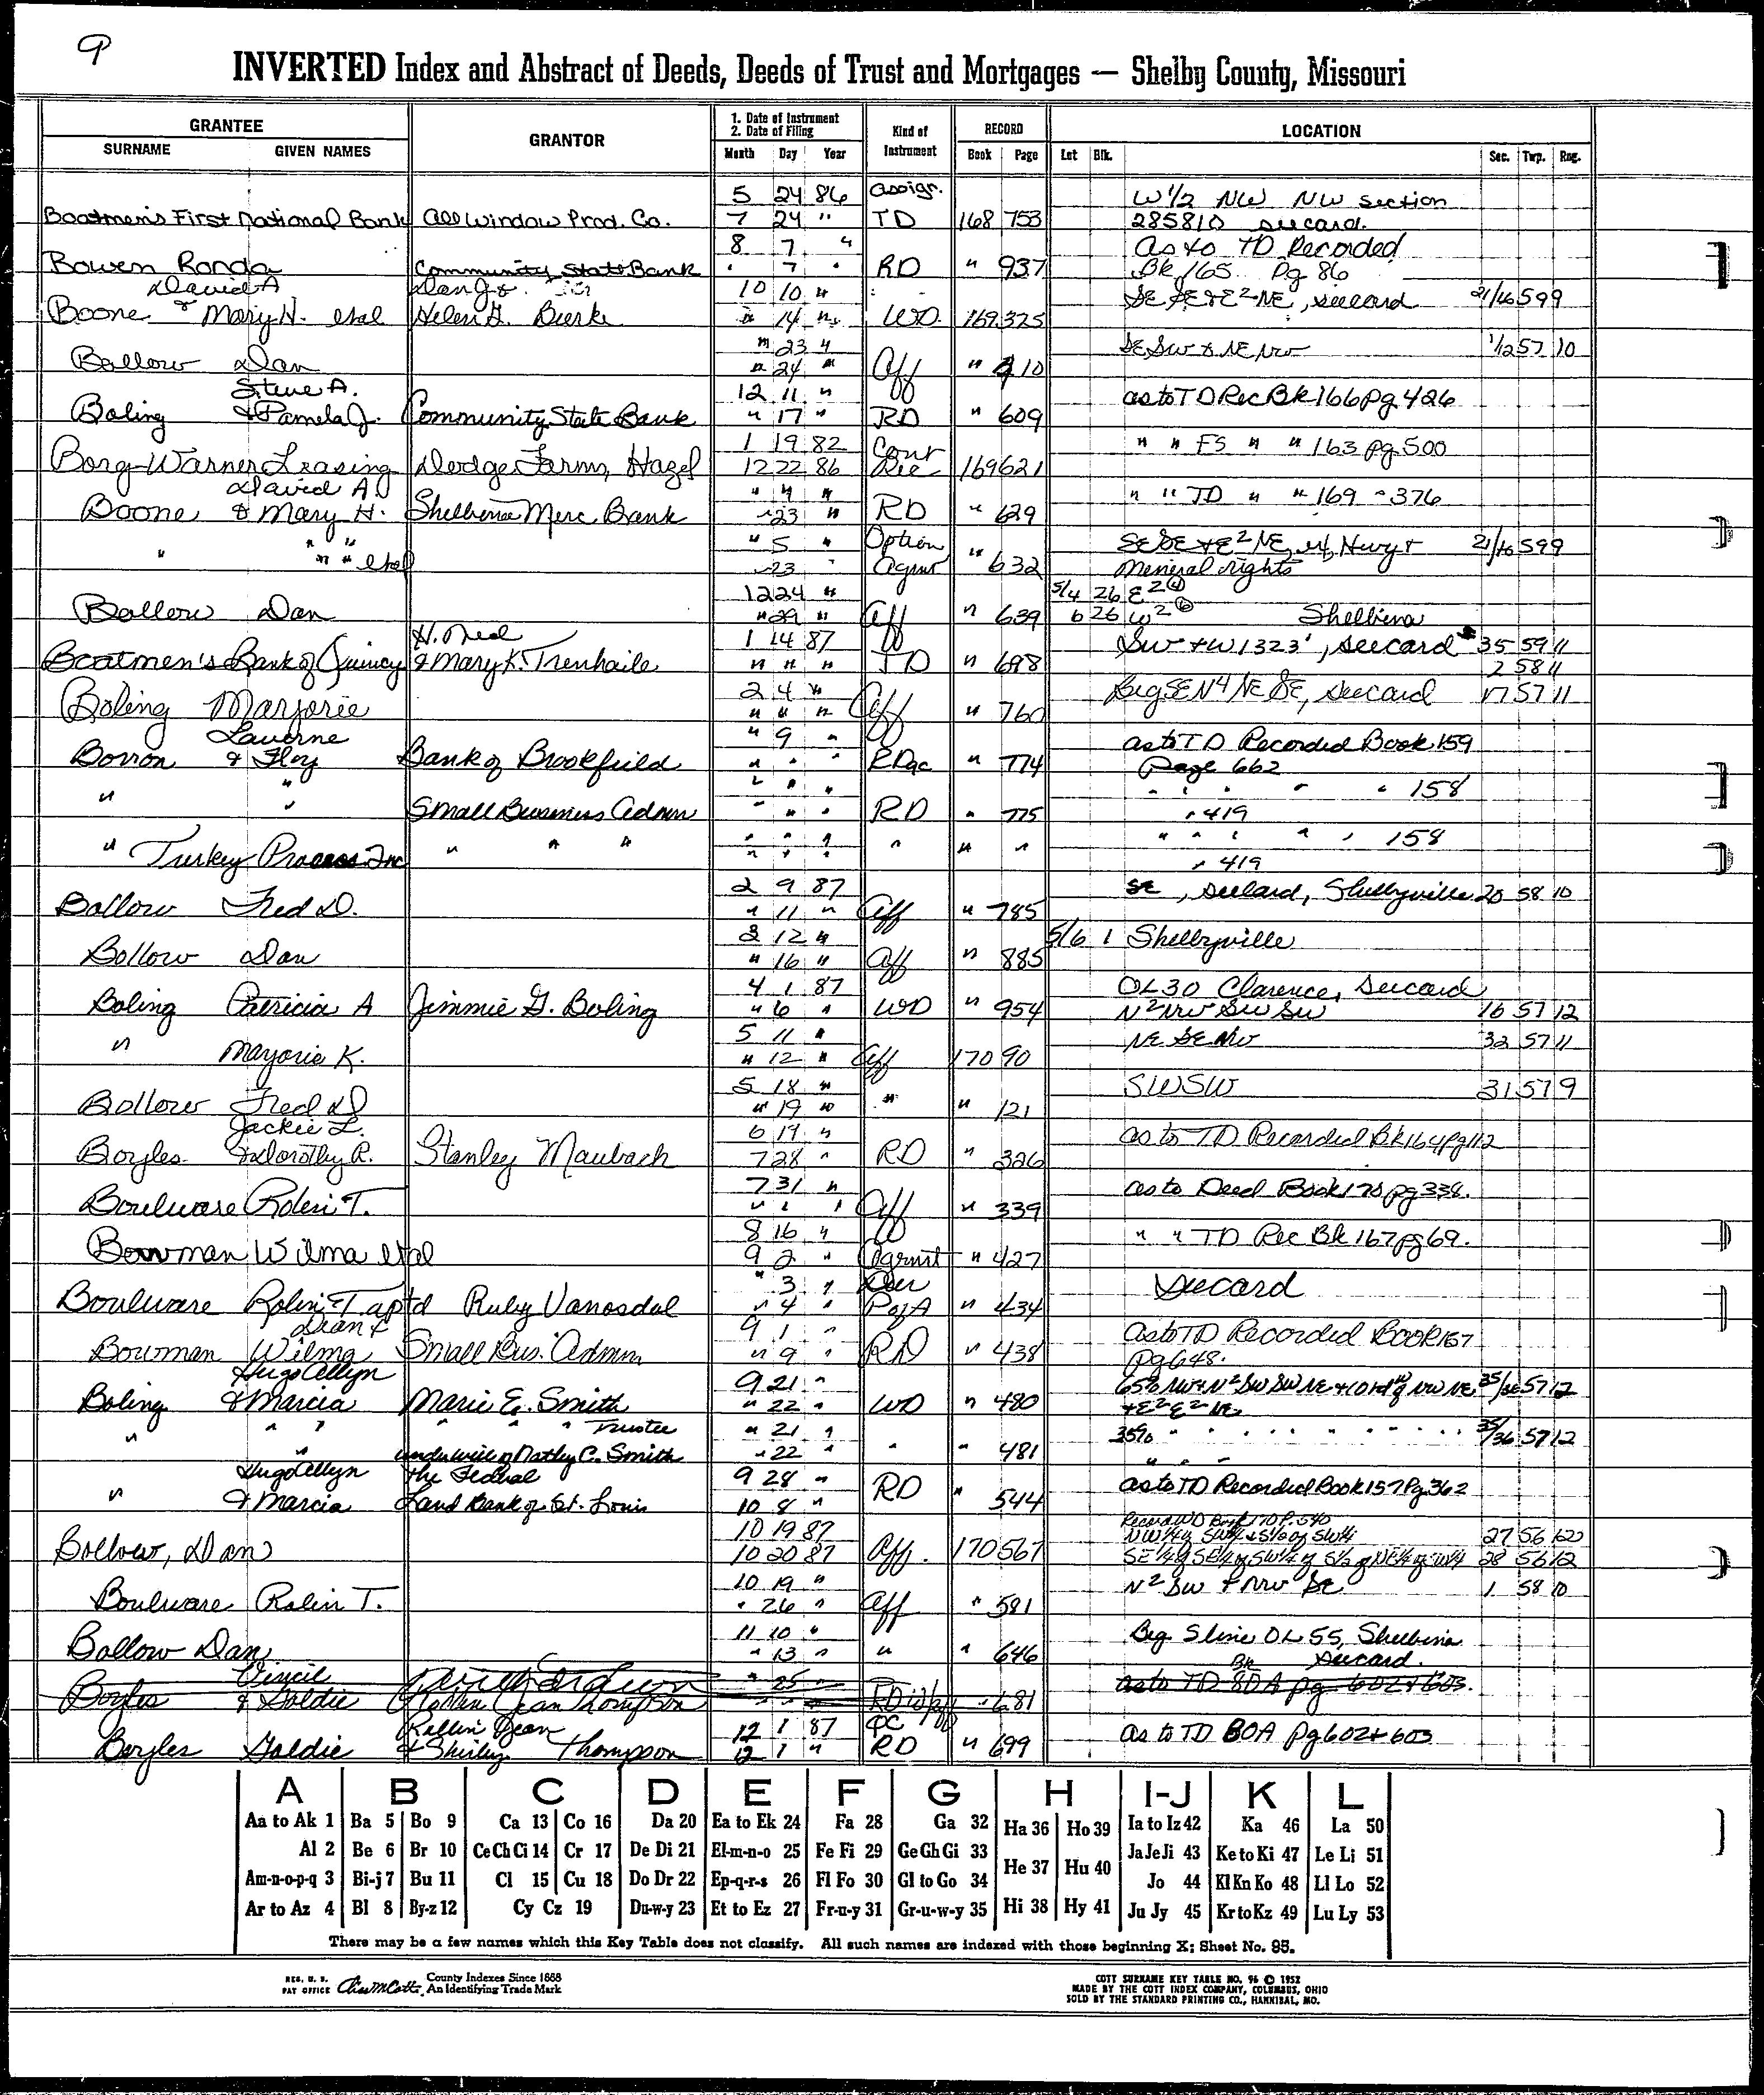 9
INVERTED Index and Abstract of Deeds, Deeds of Trust and Mortgages — Shelby County, Missouri
GRANTEE
SURNAME GIVEN NAMES
GRANTOR
1. Date of Instrument
2. Date of Filing
Month Day Year
Kind of Instrument
RECORD
Book Page
LOCATION
Lot Blk. Sec. Twp. Rng.
5 24 86 assign. W 1/2 NW NW section
Boatmen's First National Bank All Window Prod. Co. 7 24 " TD 168 753 285810 seecard.
8 7 " as to TD Recorded
Bowen Ronda Community State Bank " 7 " RD " 937 Bk 165 Pg 86
David A Dan J & 10 10 " SE SE & E2 NE, seecard 21/16 59 9
Boone & Mary H. etal Helen G. Burke " 14 " WD 169 325
" 23 " SE SW & NE NW 1/12 57 10
Bollow Dan " 24 " Aff " 410
Steve A. 12 11 " as to TD Rec Bk 166 pg 426
Boling & Pamela J. Community State Bank " 17 " RD " 609
1 19 82 Cont " " FS " " 163 pg 500
Borg-Warner Leasing Dodge Farms, Hazel 12 22 86 169 621
David A. " " " " " TD " " 169 " 376
Boone & Mary H. Shelbina Merc Bank " 23 " RD " 629
" " " " 5 " Option SE SE & E2 NE, Hwy & 21/16 59 9
" " etal 23 " Agmt " 632 Meneral rights
12 24 " 5/4 26 E2
Bollow Dan " 29 " Aff " 639 6 26 W2 Shelbina
H. Neal 1 14 87 SW & W 1323', seecard 35 59 11
Boatmen's Bank of Quincy & Mary K. Trenhaile " " " TD " 698 2 58 11
2 4 " Beg SE N4 NE SE, seecard 17 57 11
Boling Marjorie " " " Aff " 760
Laverne " 9 " as to TD Recorded Book 159
Borron & Floy Bank of Brookfield " " " RD " 774 Page 662
" " " " " " " " " " 158
Small Business Admn " " " RD " 775 " 419
" " " " " " " " 158
" Turkey Process Inc " " " " " " " " " " 419
2 9 87 SE, seecard, Shelbyville 20 58 10
Bollow Fred D. " 11 " Aff " 785
3 12 " 5/6 1 Shelbyville
Bollow Dan " 16 " Aff " 885
4 1 87 OL 30 Clarence, seecard
Boling Patricia A Jimmie G. Boling " 6 " WD " 954 N2 NW SW SW 16 57 12
5 11 " NE SE NW 32 57 11
" Marjorie K. " 12 " Aff 170 90
5 18 " SW SW 31 57 9
Bollow Fred D " 19 " " " 121
Jackie L. 6 19 " as to TD Recorded Bk 164 Pg 112
Boyles & Dorothy R. Stanley Maubach 7 28 " RD " 326
7 31 " as to Deed Book 170 pg 338.
Boulware Rolin T. " " " Aff " 339
8 16 " " " TD Rec Bk 167 pg 69.
Bowman Wilma etal 9 2 " Agrmt " 427
" 3 " Dur seecard
Boulware Rolin T aptd Ruby Vanosdal " 4 " PofA " 434
Dean & 9 1 " as to TD Recorded BOOK 157
Bowman Wilma Small Bus. Admn " 9 " RD " 438 pg 648.
Hugo Allyn 9 21 " 35/36 57 12
Boling & Marcia Marie E. Smith " 22 " WD " 480 & E2 E2 NE
" " " " " " Trustee " 21 " 35% " " " " " " " 35/36 57 12
" under will of Natley C. Smith " 22 " " " 481
Hugo Allyn The Federal 9 28 " RD as to TD Recorded Book 157 Pg 362
" & Marcia Land Bank of St. Louis 10 8 " " 544
Record WD Book 170 P. 540
10 19 87 NW 1/4 of SW 1/4 & S 1/2 of SW 1/4 27 56 12
Bollow, Dan 10 20 87 Aff. 170 567 SE 1/4 of SE 1/4 of SW 1/4 of S 1/2 of NE 1/4 of W 1/4 28 56 12
10 19 " N2 SW & NW SE 1 58 10
Boulware Rolin T. " 26 " Aff " 581
11 10 " Beg S line OL 55, Shelbina
Bollow Dan " 13 " " " 646 seecard.
Vincil " 25 Bk as to TD 80A pg 602 & 603.
Boyles & Goldie Jean Thompson " " " RD " 681
Rollin Jean 12 1 87 QC
Boyles Goldie & Shirley Thompson 12 1 " RD " 699 as to TD BOA pg 602 & 603
A B C D E F G H I-J K L
Aa to Ak 1 Ba 5 Bo 9 Ca 13 Co 16 Da 20 Ea to Ek 24 Fa 28 Ga 32 Ha 36 Ho 39 Ia to Iz 42 Ka 46 La 50
Al 2 Be 6 Br 10 Ce Ch Ci 14 Cr 17 De Di 21 El-m-n-o 25 Fe Fi 29 Ge Gh Gi 33 He 37 Hu 40 Ja Je Ji 43 Ke to Ki 47 Le Li 51
Am-n-o-p-q 3 Bi-j 7 Bu 11 Cl 15 Cu 18 Do Dr 22 Ep-q-r-s 26 Fl Fo 30 Gl to Go 34 Jo 44 Kl Kn Ko 48 Ll Lo 52
Ar to Az 4 Bl 8 By-z 12 Cy Cz 19 Du-w-y 23 Et to Ez 27 Fr-u-y 31 Gr-u-w-y 35 Hi 38 Hy 41 Ju Jy 45 Kr to Kz 49 Lu Ly 53
There may be a few names which this Key Table does not classify. All such names are indexed with those beginning X; Sheet No. 95.
REG. U. S. PAT OFFICE County Indexes Since 1888 An Identifying Trade Mark
COTT SURNAME KEY TABLE NO. 96 © 1952
MADE BY THE COTT INDEX COMPANY, COLUMBUS, OHIO
SOLD BY THE STANDARD PRINTING CO., HANNIBAL, MO.